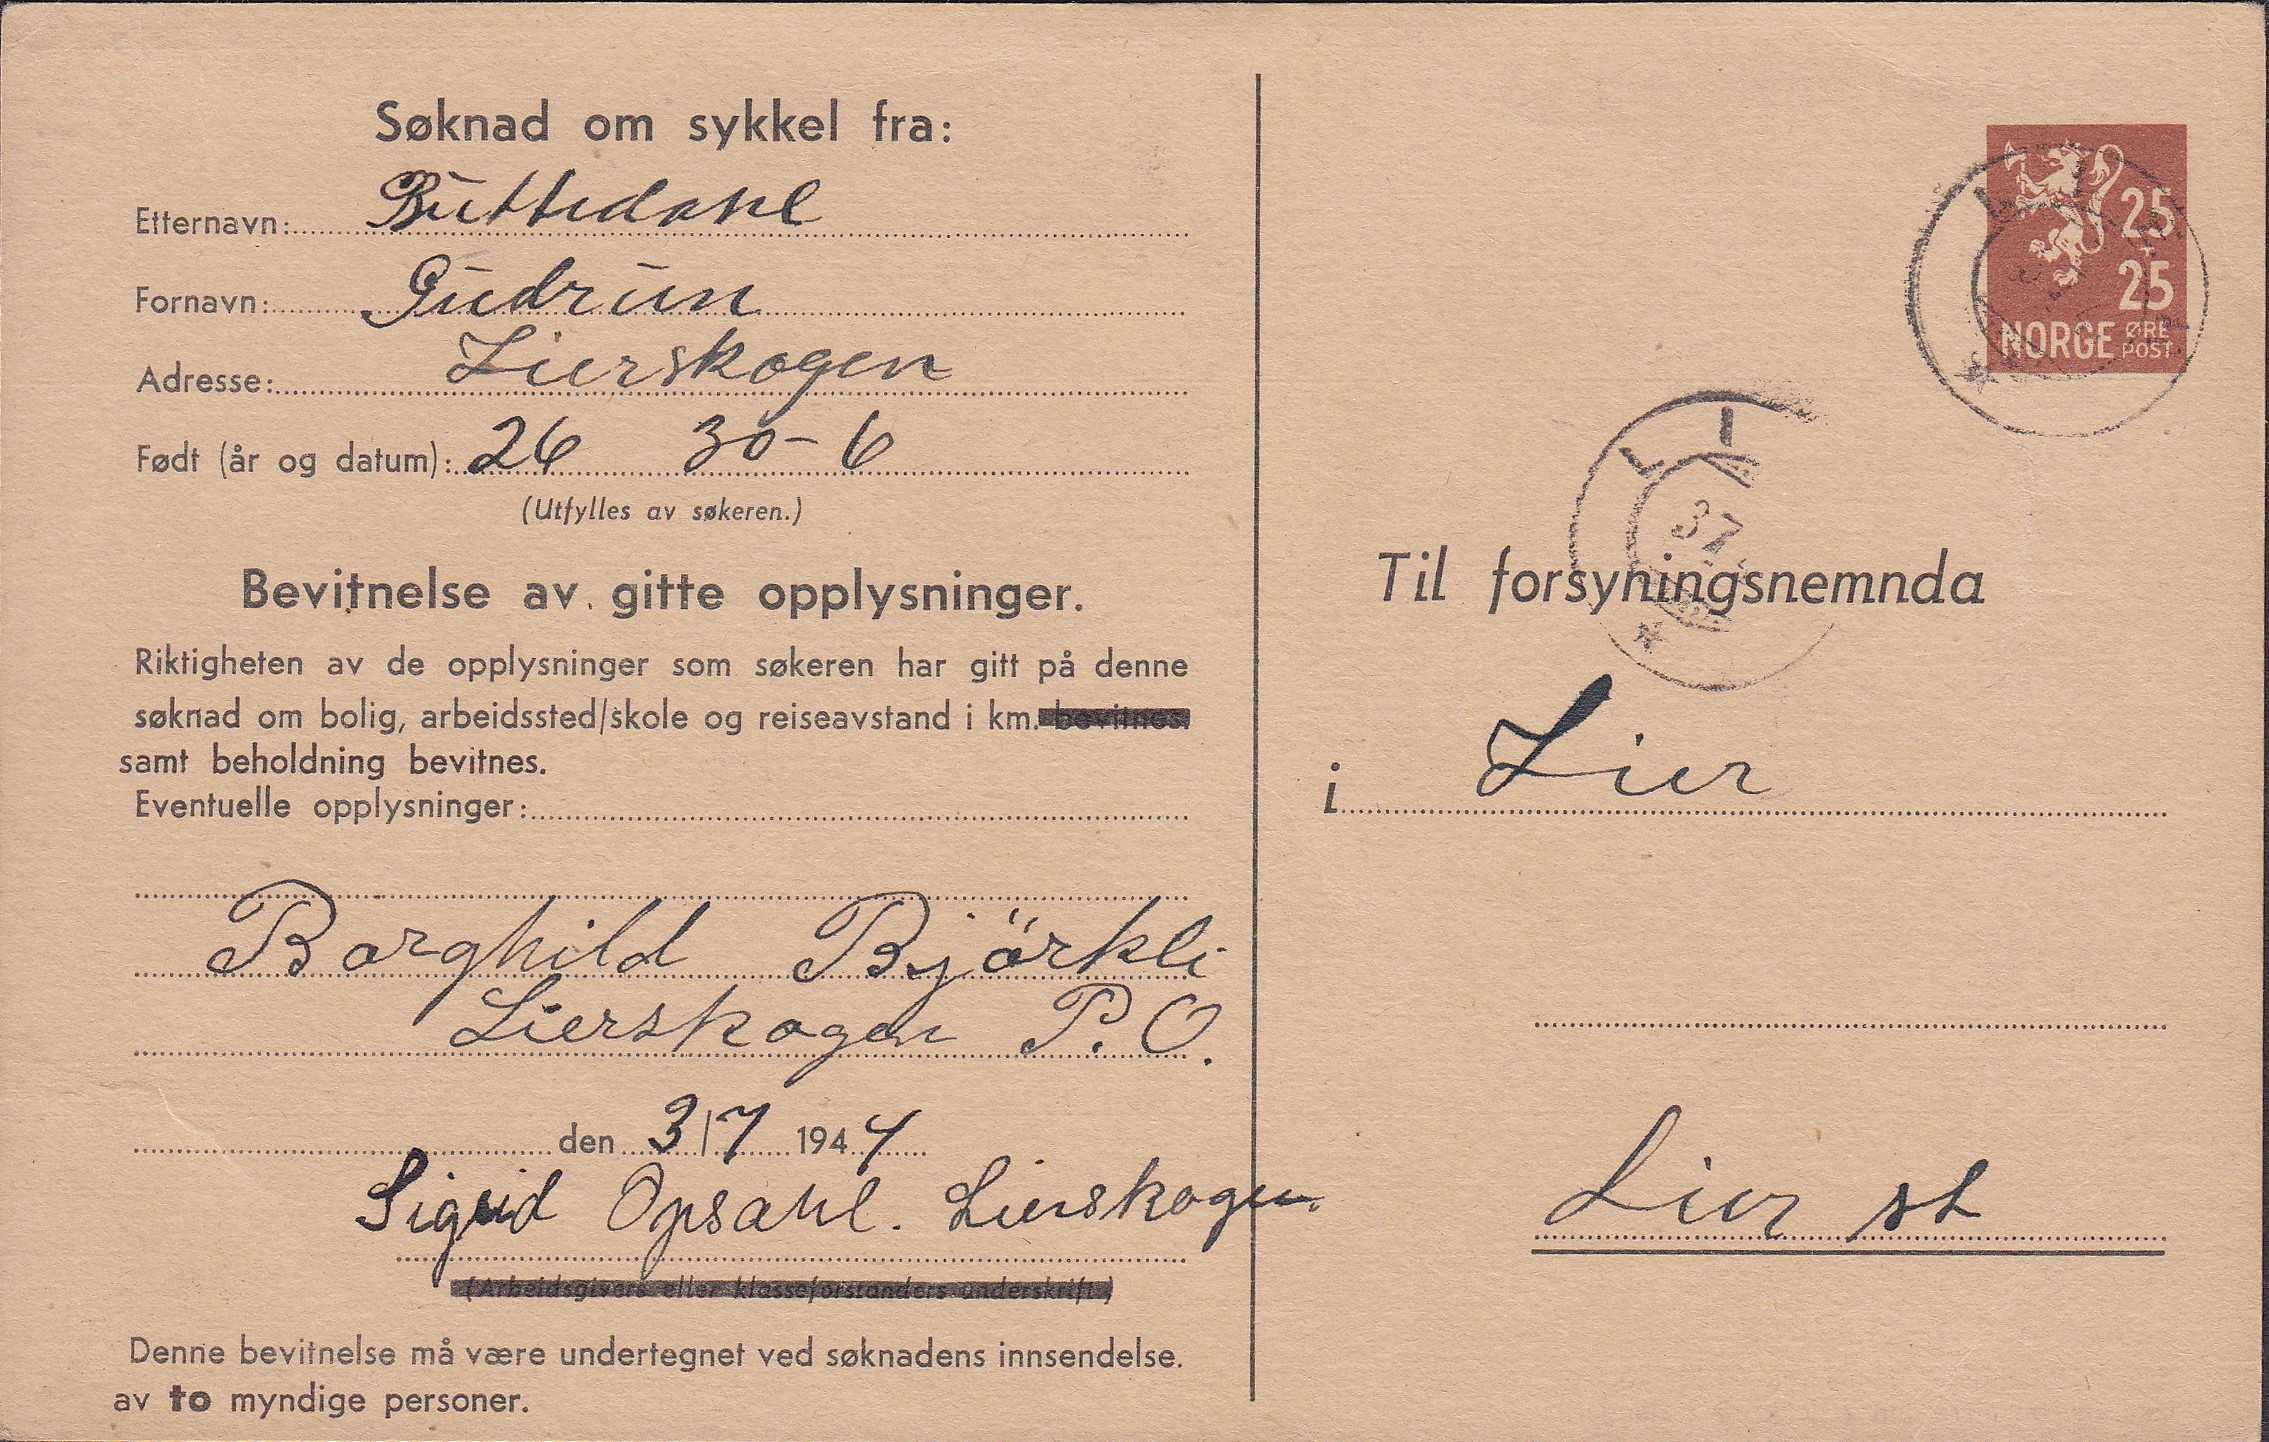 Søknad om sykkel fra:
Etternavn: Buttedahl
Fornavn: Gudrun
Adresse: Lierskogen
Født (år og datum): 26 30-6
(Utfylles av søkeren.)
Bevitnelse av gitte opplysninger.
Riktigheten av de opplysninger som søkeren har gitt på denne
søknad om bolig, arbeidssted/skole og reiseavstand i km. bevitnes.
samt beholdning bevitnes.
Eventuelle opplysninger:
Borghild Björkli
Lierskogen P.O.
den 3/7 1944
Sigrid Opsahl. Lierskogen.
(Arbeidsgivers eller klasseforstanders underskrift.)
Denne bevitnelse må være undertegnet ved søknadens innsendelse.
av to myndige personer.
25
25
NORGE ØRE
POST
LI
37
Til forsyningsnemnda
i Lier
Lier st